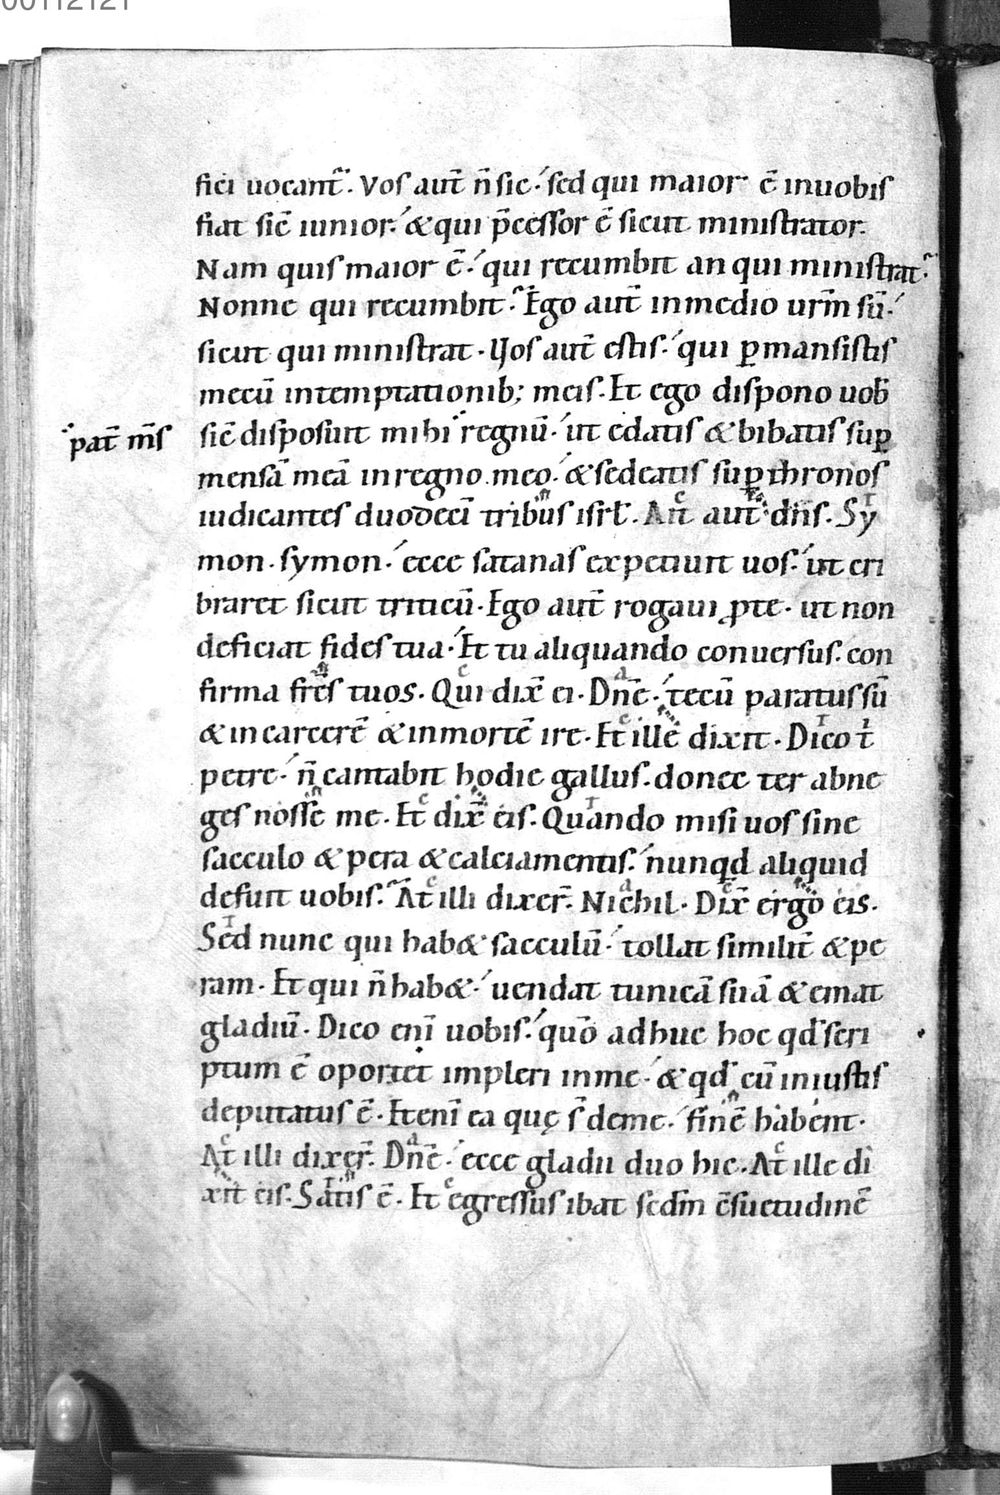 00112121
fici uocant̄. Vos aut̄ n̄ sic. sed qui maior ē inuobis
fiat sic̄ iunior. & qui p̄cessor ē sicut ministrator.
Nam quis maior ē. qui recumbit an qui ministrat.
Nonne qui recumbit. Ego aut̄ inmedio ur̄m sū.
sicut qui ministrat. Vos aut̄ estis. qui ꝑmansistis
mecū intemptationib; meis. Et ego dispono uob̄
pat̄ m̄s
sic̄ disposuit mihi regnū. ut edatis & bibatis suꝑ
mensā meā inregno meo. & sedeatis suꝑ thronos
iudicantes duodecī tribus isrl̄. Ait aut̄ dn̄s. Sy
mon. symon. ecce satanas expetiuit uos. ut cri
braret sicut triticū. Ego aut̄ rogaui ꝓte. ut non
deficiat fides tua. Et tu aliquando conuersus. con
firma fr̄es tuos. Qui dix̄ ei. Dn̄e. tecū paratus sū
& incarcerē & inmortē ire. Et ille dixit. Dico t̄
petre. n̄ cantabit hodie gallus. donec ter abne
ges nosse me. Et dix̄ eis. Quando misi uos sine
sacculo & pera & calciamentis. nunqd aliquid
defuit uobis. At illi dixer̄. Nichil. Dix̄ ergo eis.
Sed nunc qui hab& sacculū. tollat similit̄ & pe
ram. Et qui n̄ hab&. uendat tunicā suā & emat
gladiū. Dico enī uobis. quō adhuc hoc qd̄ scri
ptum ē oportet impleri inme. & qd̄ cū iniustis
deputatus ē. Etenī ea quę s̄ deme. finē habent.
At illi dixer̄. Dn̄e. ecce gladii duo hic. At ille di
xit eis. Satis ē. Et egressus ibat scdm̄ c̄suetudinē